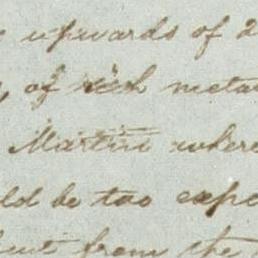 upwards of 2
, of rich meta
Martin where
ld be too expe
from the